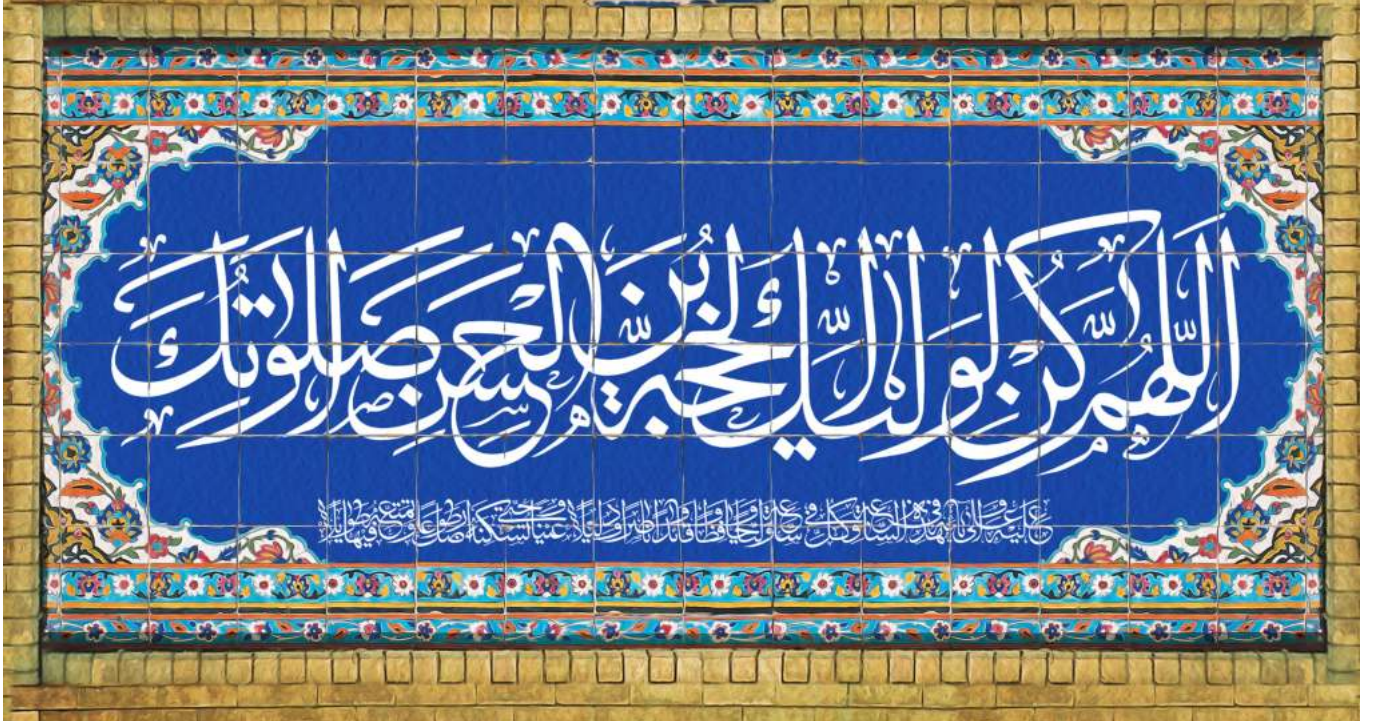 اَللّهُمَّ كُنْ لِوَلِيِّكَ الْحُجَّةِ بْنِ الْحَسَنِ صَلَواتُكَ
عَلَيْهِ وَعَلى آبائِهِ في هذِهِ السّاعَةِ وَفي كُلِّ ساعَةٍ وَلِيّاً وَحافِظاً وَقائِداً وَناصِراً وَدَليلاً وَعَيْناً حَتّى تُسْكِنَهُ أَرْضَكَ طَوْعاً وَتُمَتِّعَهُ فيها طَويلاً